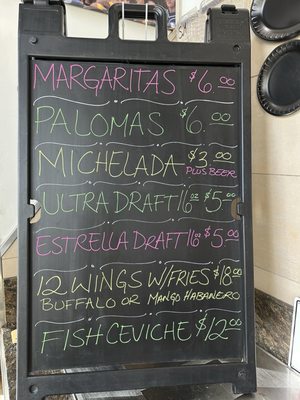 MARGARITAS $6.00
PALOMAS $6.00
MICHELADA $3.00
PLUS BEER
ULTRA DRAFT 16oz $5.00
ESTRELLA DRAFT 16oz $5.00
12 WINGS W/FRIES $18.00
BUFFALO OR MANGO HABANERO
FISH CEVICHE $12.00